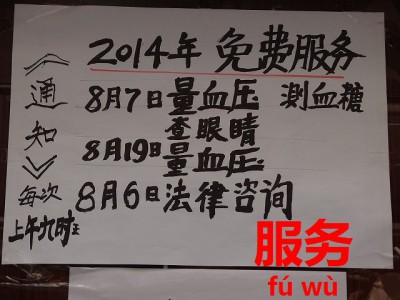 2014年 免费服务
《通知》
8月7日量血压 测血糖
查眼睛
8月19日量血压
8月6日法律咨询
每次
上午九时正
服务
fú wù